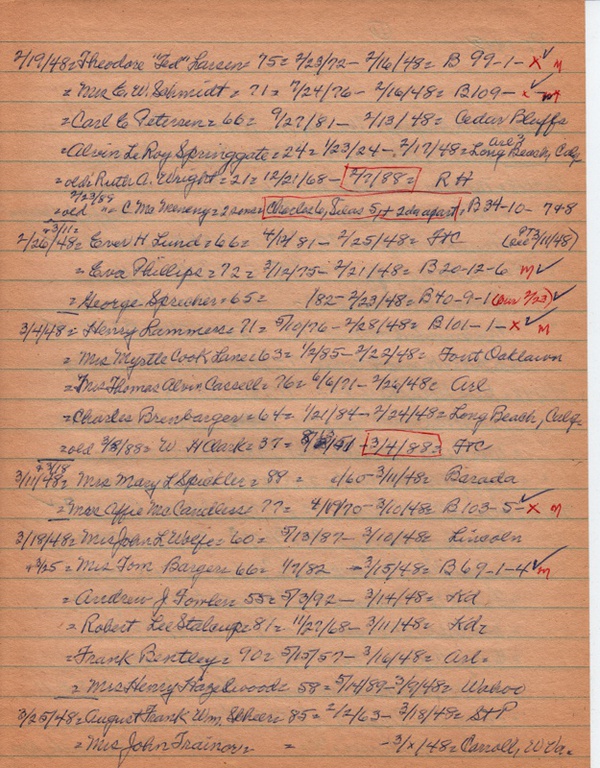 2/19/48 = Theodore "Ted" Larsen = 75 = 2/23/72 - 2/16/48 = B 99-1- x M
= Mrs C. W. Schmidt = 71 = 7/24/76 - 2/16/48 = B109 - x
= Carl C Petersen = 66 = 9/27/81 - 2/13/48 = Cedar Bluffs
= Alvin LeRoy Springgate = 24 = 1/23/24 - 2/17/48 = Long Beach, Calif
= old = Ruter A. Wright = 21 = 12/21/68 - 2/7/88 = R H
2/23/88
= old " C. Mc Meneny = 2 sons = Cleoclas 6, Silas 5, + 2 da apart, B 34-10- 7+8
+ 3/11 =
2/26/48 = Ever H Lund = 66 = 4/13/81 - 2/25/48 = Ft C
= Eva Phillips = 72 = 3/12/75 - 2/21/48 = B 20-12-6 M
= George Sprecher = 65 = /82 - 2/23/48 = B40-9-1 (Sun 2/23)
3/4/48 = Henry Rammers = 71 = 5/10/76 - 2/28/48 = B101-1- x M
= Mrs Myrtle Cook Lane = 63 = 1/2/85 - 2/22/48 = Font Oaklawn
= Mrs Thomas Alvin Cassell = 76 = 6/6/71 - 2/26/48 = Arl
= Charles Brenbarger = 64 = 1/21/84 - 2/24/48 = Long Beach, Calif
= old 3/8/88 = W H Clark = 37 = - 3/4/88 = Ft C
+ 3/18
3/11/48 = Mrs Mary L Spickler = 88 = /60 - 3/11/48 = Barada
= Mrs Affie McCandless = 77 = 4/19/70 - 3/10/48 = B 103-5- x M
3/18/48 = Mrs John L Wolfe = 60 = 5/13/87 - 3/10/48 = Lincoln
+ 3/25 = Mrs Tom Barger = 66 = 4/7/82 - 3/15/48 = B 69-1-4 M
= Andrew J Fowler = 55 = 5/3/92 - 3/14/48 = Kd
= Robert Lee Staloup = 81 = 11/27/66 - 3/11/48 = Kd =
= Frank Bentley = 90 = 5/15/57 - 3/16/48 = Arl =
= Mrs Henry Hazelwood = 58 = 5/14/89 - 3/9/48 = Wahoo
3/25/48 = August Frank Wm. Scheer = 85 = 2/2/63 - 3/18/48 = St P
= Mrs John Trainor = = - 3/x/48 = Carroll, W Va =